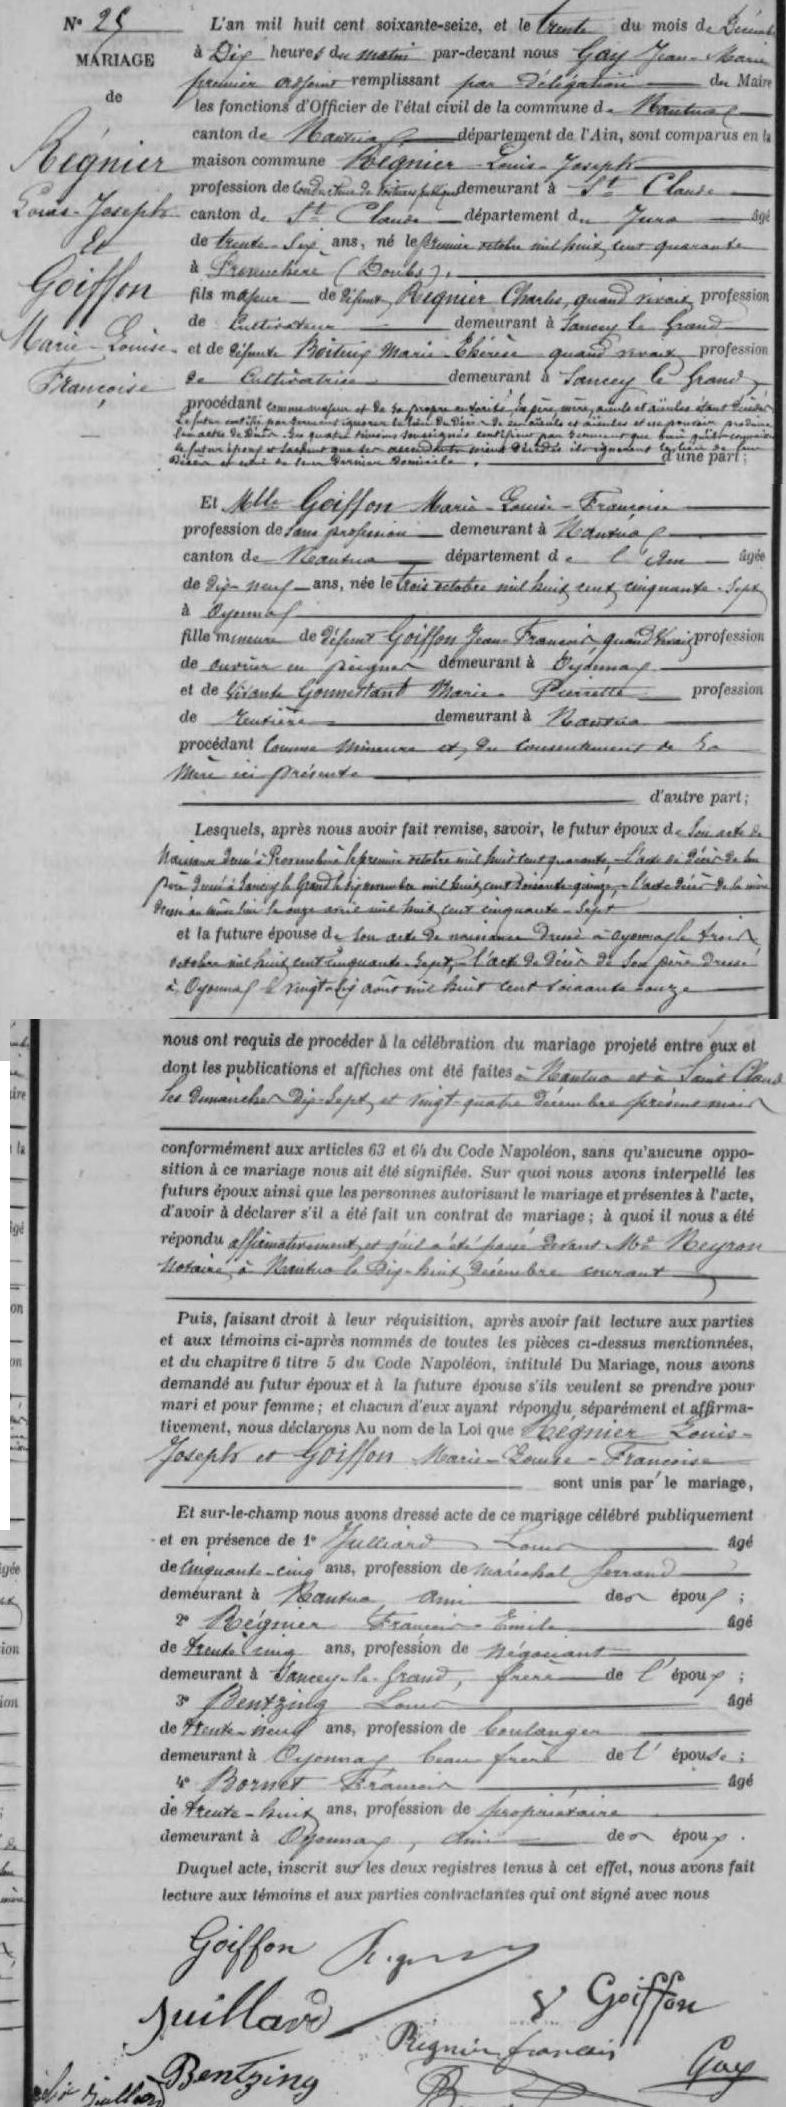 N° 25
MARIAGE
de
Régnier
Louis-Joseph
Et
Goiffon
Marie-Louise-
Françoise
L'an mil huit cent soixante-seize, et le trente du mois de Décembre
à Dix heures du matin par-devant nous Gay Jean-Marie
premier adjoint remplissant par délégation du Maire
les fonctions d'Officier de l'état civil de la commune de Nantua
canton de Nantua département de l'Ain, sont comparus en la
maison commune Régnier Louis-Joseph
profession de Conducteur de voitures publiques demeurant à St Claude
canton de St Claude département du Jura âgé
de trente-six ans, né le premier octobre mil huit cent quarante
à (Doubs),
fils majeur de défunt Régnier Charles, quand vivait profession
de Cultivateur demeurant à Sancey le Grand
et de défunte Boiteux Marie-Thérèse quand vivait profession
de Cultivatrice demeurant à Sancey le Grand,
procédant comme majeur et de sa propre autorité, ses père, mère, aïeuls et aïeules étant décédés
Le futur certifie par serment ignorer le lieu du décès de ses aïeuls et aïeules et ne pouvoir produire
leur acte de décès. Les quatre témoins soussignés certifient par serment que bien qu'ils connaissent
le futur époux et sachent que ses ascendants soient décédés ils ignorent le lieu de leur
décès et celui de leur dernier domicile. d'une part;
Et Mlle Goiffon Marie-Louise-Françoise
profession de sans profession demeurant à Nantua
canton de Nantua département de l'Ain âgée
de dix-neuf ans, née le trois octobre mil huit cent cinquante-sept
à Oyonnax
fille mineure de défunt Goiffon Jean-François quand vivait profession
de ouvrier en peignes demeurant à Oyonnax
et de vivante Gonnestant Marie-Pierrette profession
de rentière demeurant à Nantua
procédant comme mineure et du consentement de sa
mère ici présente
d'autre part;
Lesquels, après nous avoir fait remise, savoir, le futur époux de son acte de
Naissance dressé à le premier octobre mil huit cent quarante, l'acte de décès de son
père dressé à Sancey le Grand le dix novembre mil huit cent soixante-quinze, l'acte décès de la mère
dressé au même lieu le onze avril mil huit cent cinquante-sept
et la future épouse de son acte de naissance dressé à Oyonnax le trois
octobre mil huit cent cinquante-sept, l'acte de décès de son père dressé
à Oyonnax le vingt-six août mil huit cent soixante-onze
nous ont requis de procéder à la célébration du mariage projeté entre eux et
dont les publications et affiches ont été faites à Nantua et à Saint Claude
les dimanches dix-sept et vingt-quatre décembre présent mois
conformément aux articles 63 et 64 du Code Napoléon, sans qu'aucune oppo-
sition à ce mariage nous ait été signifiée. Sur quoi nous avons interpellé les
futurs époux ainsi que les personnes autorisant le mariage et présentes à l'acte,
d'avoir à déclarer s'il a été fait un contrat de mariage; à quoi il nous a été
répondu affirmativement, et qu'il a été passé devant Me Neyron
Notaire à Nantua le dix-huit décembre courant
Puis, faisant droit à leur réquisition, après avoir fait lecture aux parties
et aux témoins ci-après nommés de toutes les pièces ci-dessus mentionnées,
et du chapitre 6 titre 5 du Code Napoléon, intitulé Du Mariage, nous avons
demandé au futur époux et à la future épouse s'ils veulent se prendre pour
mari et pour femme; et chacun d'eux ayant répondu séparément et affirma-
tivement, nous déclarons Au nom de la Loi que Régnier Louis-
Joseph et Goiffon Marie-Louise-Françoise
sont unis par le mariage,
Et sur-le-champ nous avons dressé acte de ce mariage célébré publiquement
et en présence de 1° Julliard Louis âgé
de Cinquante-cinq ans, profession de maréchal ferrand
demeurant à Nantua, ami des époux;
2° Régnier François-Emile âgé
de trente cinq ans, profession de négociant
demeurant à Sancey-le-Grand, frère de l'époux;
3° Bentzing Louis âgé
de trente-neuf ans, profession de boulanger
demeurant à Oyonnax beau frère de l'épouse;
4° Bornet François âgé
de trente-huit ans, profession de propriétaire
demeurant à Oyonnax, ami des époux.
Duquel acte, inscrit sur les deux registres tenus à cet effet, nous avons fait
lecture aux témoins et aux parties contractantes qui ont signé avec nous
Goiffon
Juillard
Goiffon
Régnier françois
Bentzing
Gay